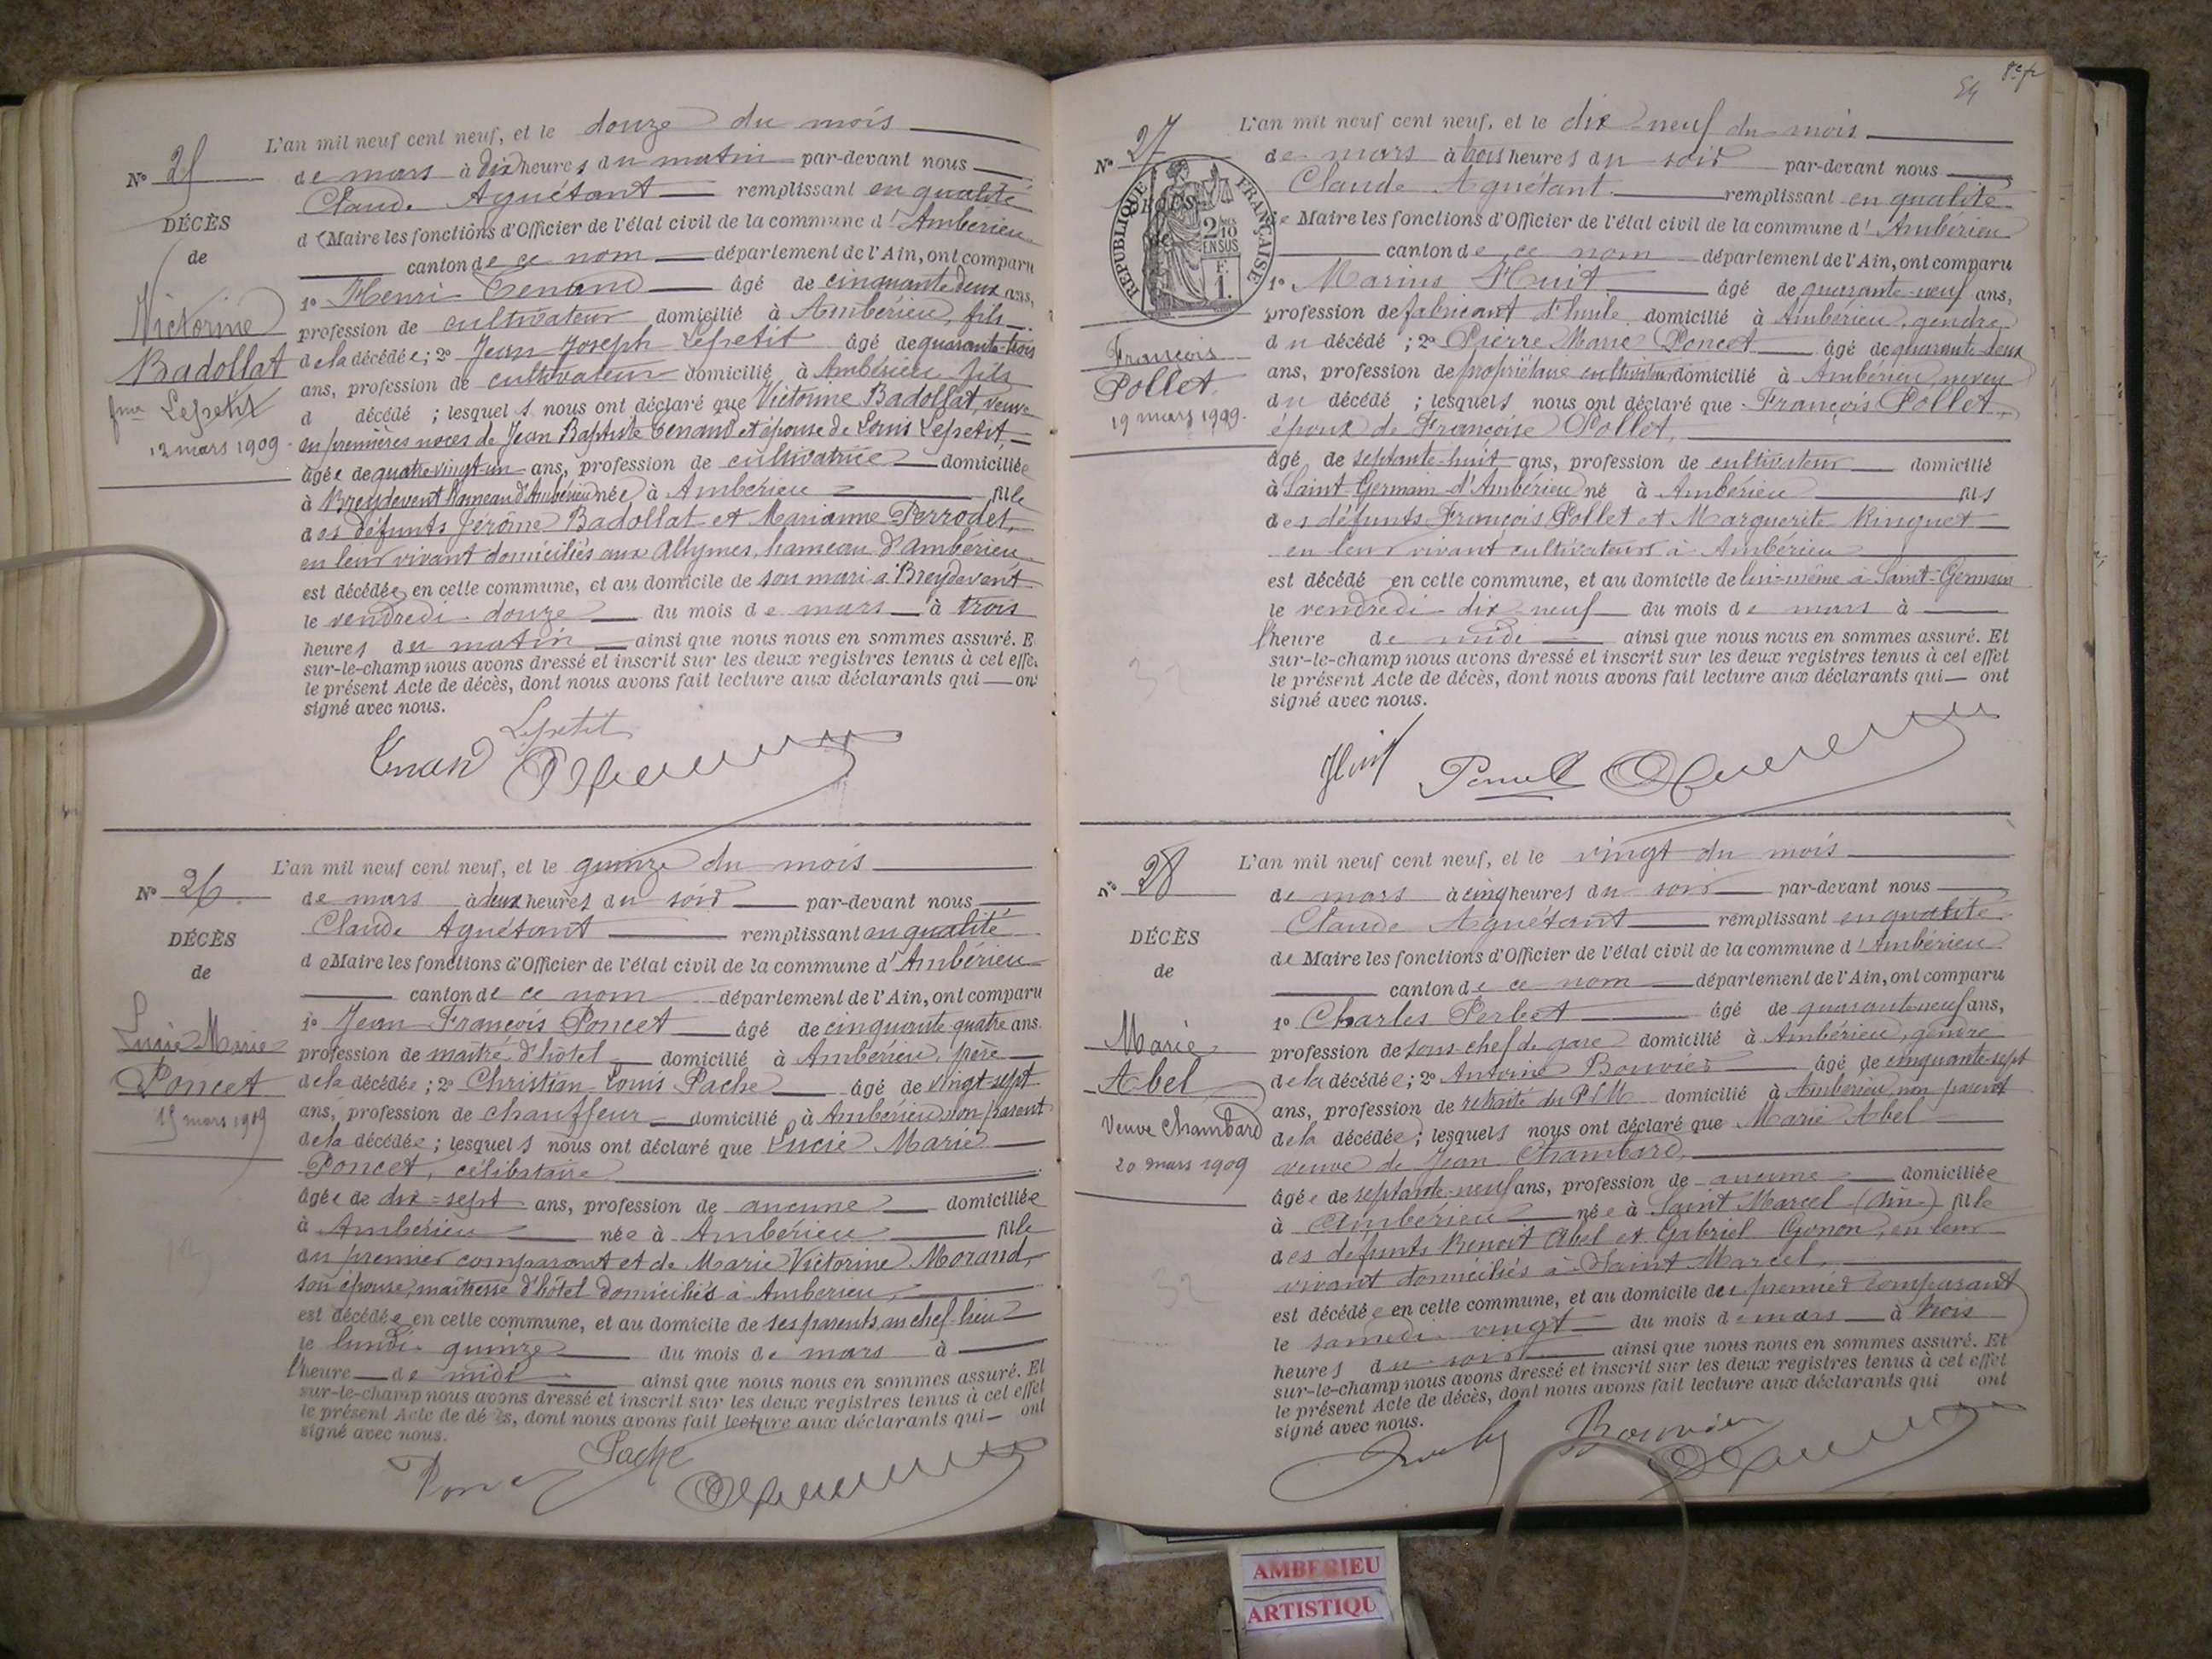 L'an mil neuf cent neuf, et le douze du mois
N° 25
de mars à dix heures du matin par-devant nous
Claude Aguétant remplissant en qualité
DÉCÈS
de Maire les fonctions d'Officier de l'état civil de la commune d'Ambérieu
de
canton de ce nom département de l'Ain, ont comparu
1° Henri Tenand âgé de cinquante deux ans,
Victorine
profession de cultivateur domicilié à Ambérieu, fils
Badollat
de la décédée; 2° Jean Joseph Lepetit âgé de quarante-trois
ans, profession de cultivateur domicilié à Ambérieu fils
fme Lepetit
d décédé ; lesquels nous ont déclaré que Victorine Badollat, veuve
12 mars 1909
en premières noces de Jean Baptiste Tenand et épouse de Louis Lepetit,
âgée de quatre-vingt-un ans, profession de cultivatrice domiciliée
à Breydevent hameau d'Ambérieu née à Ambérieu fille
des défunts Jérôme Badollat et Marianne Perrodet,
en leur vivant domiciliés aux Allymes, hameau d'Ambérieu
est décédée en cette commune, et au domicile de son mari à Breydevent
le vendredi douze du mois de mars à trois
heures du matin ainsi que nous nous en sommes assuré. E
sur-le-champ nous avons dressé et inscrit sur les deux registres tenus à cet effe
le présent Acte de décès, dont nous avons fait lecture aux déclarants qui on
signé avec nous.
Lepetit
Tenand
L'an mil neuf cent neuf, et le quinze du mois
N° 26
de mars à deux heures du soir par-devant nous
Claude Aguétant remplissant en qualité
DÉCÈS
de Maire les fonctions d'Officier de l'état civil de la commune d'Ambérieu
de
canton de ce nom département de l'Ain, ont comparu
1° Jean François Poncet âgé de cinquante-quatre ans.
Lucie Marie
profession de maître d'hôtel domicilié à Ambérieu, père
Poncet
de la décédée; 2° Christian Louis Pache âgé de vingt-sept
15 mars 1909
ans, profession de chauffeur domicilié à Ambérieu non parent
de la décédée; lesquels nous ont déclaré que Lucie Marie
Poncet, célibataire
âgée de dix-sept ans, profession de aucune domiciliée
à Ambérieu née à Ambérieu fille
du premier comparant et de Marie Victorine Morand,
son épouse, maîtresse d'hôtel domiciliés à Ambérieu,
est décédée en cette commune, et au domicile de ses parents au chef-lieu
le lundi quinze du mois de mars à
l'heure de midi ainsi que nous nous en sommes assuré. Et
sur-le-champ nous avons dressé et inscrit sur les deux registres tenus à cet effet
le présent Acte de décès, dont nous avons fait lecture aux déclarants qui ont
signé avec nous.
Pache
Poncet
54
L'an mil neuf cent neuf, et le dix-neuf du mois
N° 27
de mars à trois heures du soir par-devant nous
Claude Aguétant remplissant en qualité
RÉPUBLIQUE FRANÇAISE
2/10 EN SUS
F. 1.
de Maire les fonctions d'Officier de l'état civil de la commune d'Ambérieu
canton de ce nom département de l'Ain, ont comparu
1° Marius Huit âgé de quarante-neuf ans,
profession de fabricant d'huile domicilié à Ambérieu, gendre
François
du décédé ; 2° Pierre Marie Poncet âgé de quarante deux
Pollet
ans, profession de propriétaire cultivateur domicilié à Ambérieu, neveu
19 mars 1909
du décédé ; lesquels nous ont déclaré que François Pollet,
époux de Françoise Pollet,
âgé de septante-huit ans, profession de cultivateur domicilié
à Saint-Germain-d'Ambérieu né à Ambérieu fils
des défunts François Pollet et Marguerite Ringuet
en leur vivant cultivateurs à Ambérieu
est décédé en cette commune, et au domicile de lui-même à Saint-Germain
le vendredi dix-neuf du mois de mars à
l'heure de midi ainsi que nous nous en sommes assuré. Et
sur-le-champ nous avons dressé et inscrit sur les deux registres tenus à cet effet
le présent Acte de décès, dont nous avons fait lecture aux déclarants qui ont
signé avec nous.
Huit
L'an mil neuf cent neuf, et le vingt du mois
N° 28
de mars à cinq heures du soir par-devant nous
Claude Aguétant remplissant en qualité
DÉCÈS
de Maire les fonctions d'Officier de l'état civil de la commune d'Ambérieu
de
canton de ce nom département de l'Ain, ont comparu
1° Charles Perbet âgé de quarante-neuf ans,
Marie
profession de sous-chef de gare domicilié à Ambérieu, gendre
Abel
de la décédée; 2° Antoine Bouvier âgé de cinquante-sept
ans, profession de retraité du PLM domicilié à Ambérieu, non parent
Veuve Chambard
de la décédée; lesquels nous ont déclaré que Marie Abel
20 mars 1909
veuve de Jean Chambard,
âgée de septante-neuf ans, profession de aucune domiciliée
à Ambérieu née à Saint Marcel (Ain) fille
des défunts Benoit Abel et Gabriel Gonon, en leur
vivant domiciliés à Saint Marcel,
est décédée en cette commune, et au domicile du premier comparant
le samedi vingt du mois de mars à trois
heures du soir ainsi que nous nous en sommes assuré. Et
sur-le-champ nous avons dressé et inscrit sur les deux registres tenus à cet effet
le présent Acte de décès, dont nous avons fait lecture aux déclarants qui ont
signé avec nous.
Bouvier
AMBERIEU
ARTISTIQU